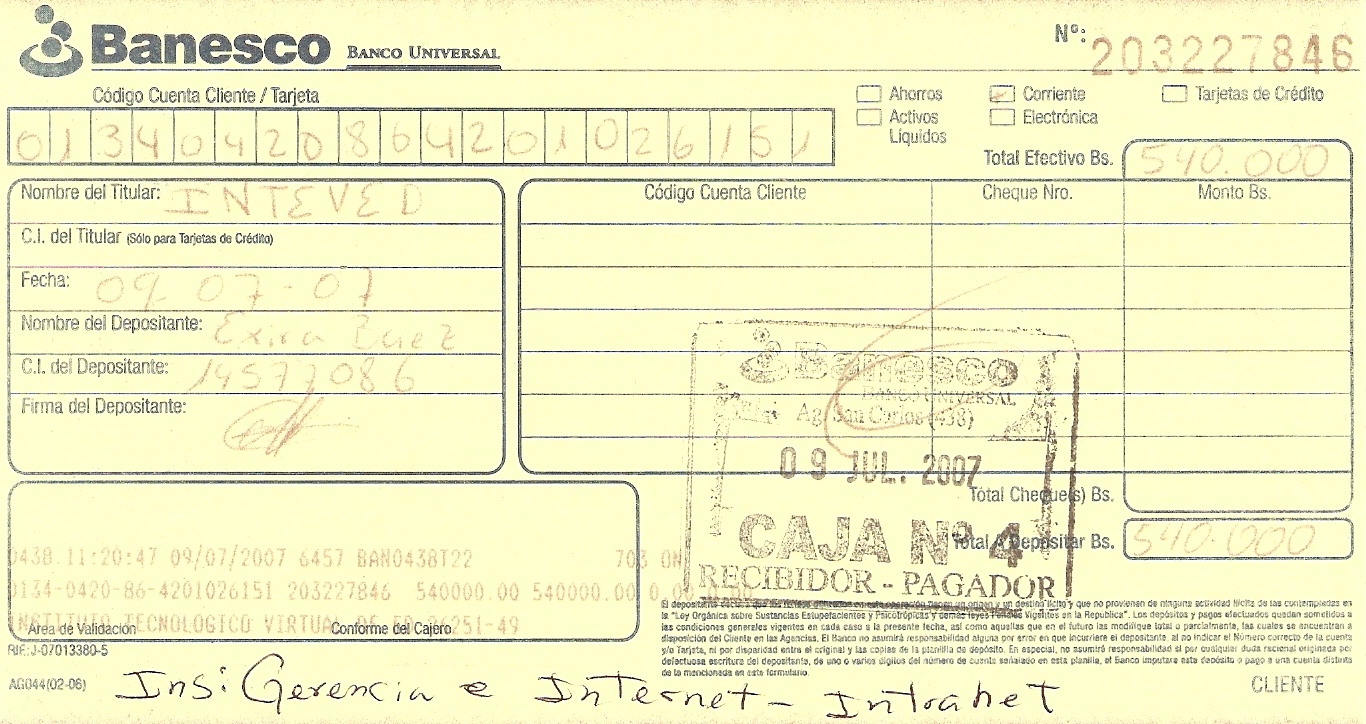 Banesco BANCO UNIVERSAL
Nº: 203227846
Código Cuenta Cliente / Tarjeta
Ahorros Corriente Tarjetas de Crédito
Activos Líquidos Electrónica
01340420864201026151
Total Efectivo Bs. 540.000
Nombre del Titular: INTEVED
Código Cuenta Cliente Cheque Nro. Monto Bs.
C.I. del Titular (Sólo para Tarjetas de Crédito)
Fecha: 09-07-07
Nombre del Depositante: Exira Baez
C.I. del Depositante: 14577086
Firma del Depositante:
Banesco
BANCO UNIVERSAL
Ag. San Carlos (438)
09 JUL. 2007
CAJA Nº 4
RECIBIDOR - PAGADOR
Total Cheque(s) Bs.
Total A Depositar Bs. 540.000
0438.11:20:47 09/07/2007 6457 BAN0438T22 703 ON
0134-0420-86-4201026151 203227846 540000.00 540000.00 0.00
INSTITUTO TECNOLOGICO VIRTUAL DE 251-49
Area de Validación Conforme del Cajero
RIF:J-07013380-5
El depositante declara que los fondos utilizados en esta operación tienen un origen y un destino lícito y que no provienen de ninguna actividad ilícita de las contempladas en
la "Ley Orgánica sobre Sustancias Estupefacientes y Psicotrópicas y demás leyes Penales Vigentes en la República". Los depósitos y pagos efectuados quedan sometidos a
las condiciones generales vigentes en cada caso a la presente fecha, así como a aquellas que en el futuro las modifique total o parcialmente, las cuales se encuentran a
disposición del Cliente en las Agencias. El Banco no asumirá responsabilidad alguna por error en que incurriere el depositante, al no indicar el Número correcto de la cuenta
y/o Tarjeta, ni por disparidad entre el original y las copias de la planilla de depósito. En especial, no asumirá responsabilidad si por cualquier duda racional originada por
defectuosa escritura del depositante, de uno o varios dígitos del número de cuenta señalado en esta planilla, el Banco imputare este depósito o pago a una cuenta distinta
de la mencionada en este formulario.
AG044(02-06)
CLIENTE
Ins: Gerencia e Internet - Intranet